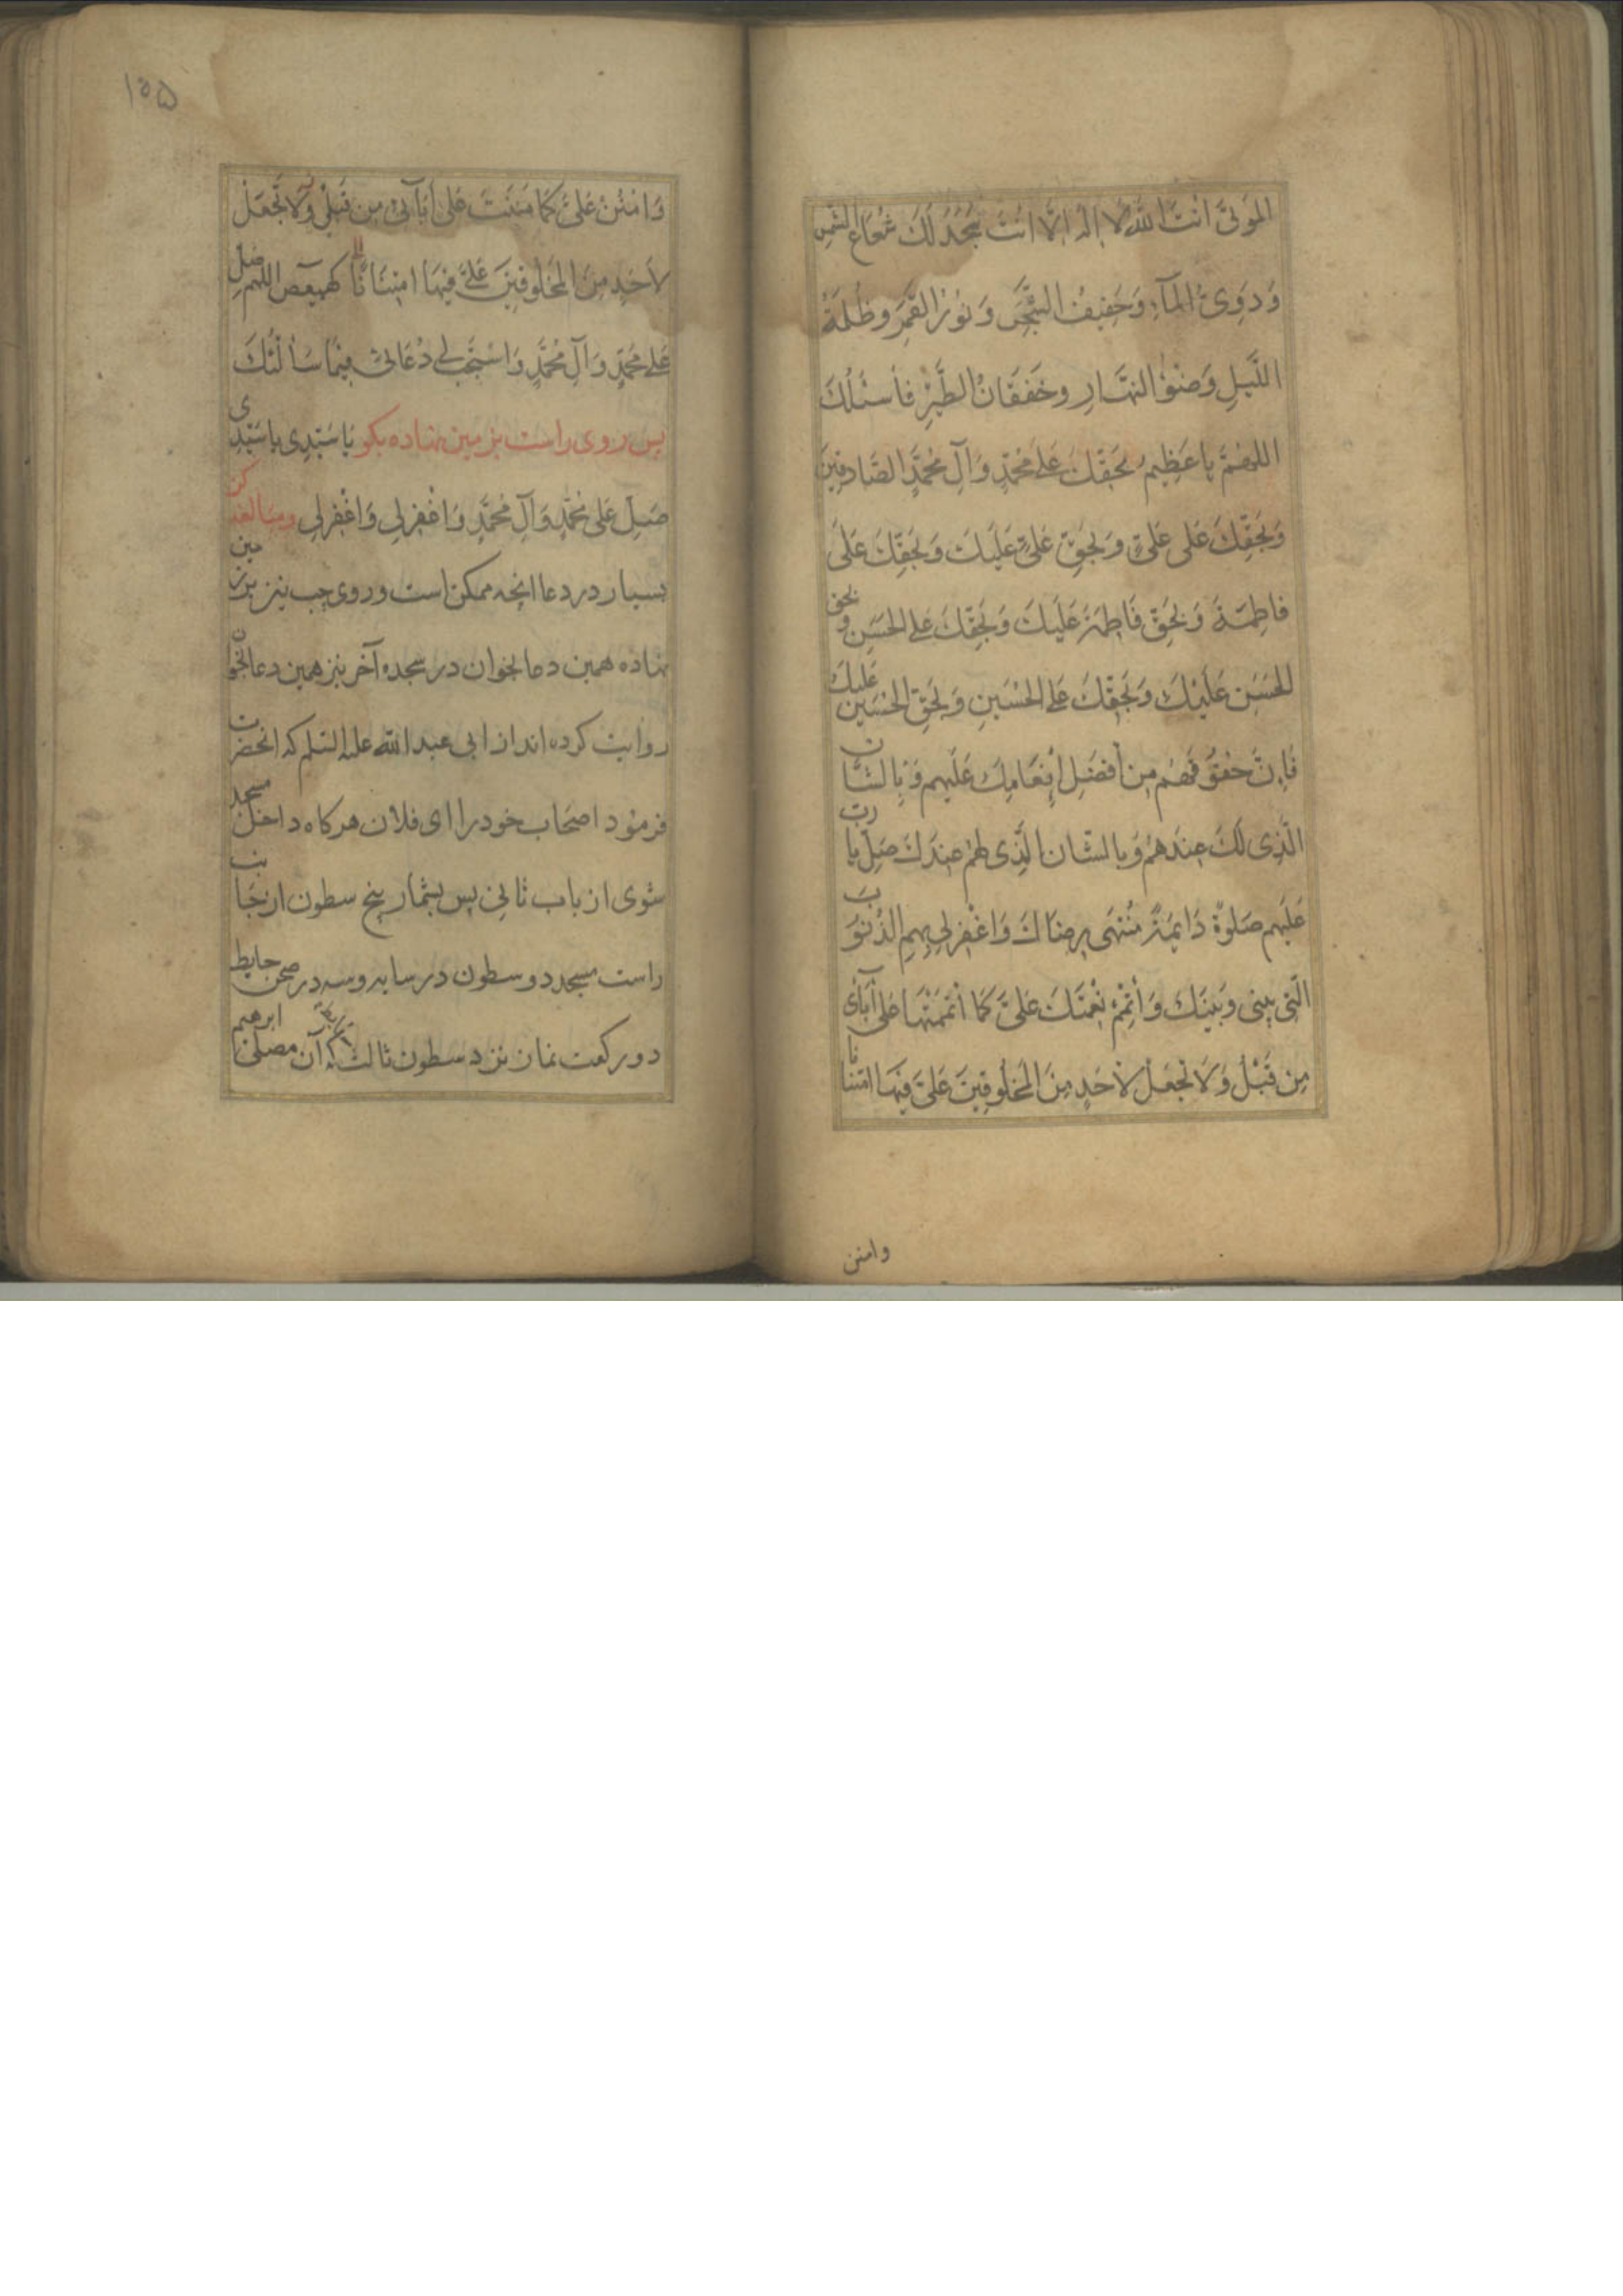 المَوتىَّ انتَ اللّهُ لا اِلهَ اِلّا انتَ سَجَدَ لَكَ شُعاعُ الشّمس
وَ دَوِىُّ المآءِ وَحَفيفُ الشَّجَرِ وَ نُورُ القَمَرِ وظُلمَةُ
اللَّيلِ وَضَوْءُ النهّارِ وخَفَقانُ الطَّيْرِ فاَسئلُكَ
اللهُمَّ يا عَظيمُ بحَقّكَ عَلى مُحمّدٍ وَآلِ مُحمّدٍ الصّادقينَ
وَبحَقِّكَ عَلى عَلىٍّ وبحَقِّ عَلىٍّ عَلَيكَ وَبحَقِّكَ عَلىَ
فاطِمَةَ وَبحَقِّ فَاطِمَةَ عَلَيكَ وَبحَقّكَ عَلى الحَسَنِ وبحق
الحَسَنِ عَلَيْكَ وَبحَقِّكَ عَلى الحُسَينِ وَبحَقّ الحُسَينِ عَليكَ
فَاِنَّ حقوُقَهُم مِن اَفضَلِ اِنعَامِكَ عَلَيهِم وَبِالشّان
الَّذِى لَكَ عِندَهُم وَبالشّان الَّذِى لهُم عِندَكَ صَلِّ يا ربّ
عَلَيهِم صَلوةً دَايمَةً مُنتهَى رِضَاكَ وَاغْفِر لِى بِهِمِ الذُنوُبَ
الّتِى بينى وبَينَكَ وَأتمِمْ نِعْمَتَكَ عَلىَّ كمَا أتمَمْتَهَا عَلى آبَآئى
مِن قَبْلُ وَلا تجْعَلْ لاَحَدٍ مِنَ المَخلُوقِينَ عَلىَّ فيِهَا امتنانا
وامنن
١٥۵
وَامْنُنْ عَلىَّ كمَا مَنَنتَ عَلى آبَآئىْ مِن قَبْلِى وَلاَ تجْعَلْ
لاَحَدٍ مِنَ المَخلُوقينَ عَلَىَّ فيهَا امتِنَانًا كهيعص اللهم صَلِّ
عَلى مُحمّدٍ وَآلِ مُحمَّدٍ وَاستَجِب لى دُعَائىْ فيمَا سَألتُكَ
پس روى راست بر زمين نهاده بكو يَا سَيّدِى يا سَيّدِى
صَلِّ عَلى مُحمّدٍ وَآلِ مُحَمَّدٍ وَاغْفِرلِى وَاغْفِرلى ومبالغه كن
بسيار در دعا انچه ممكن است وروى چپ نيز بر زمين
نهاده همين دعا بخوان در سجده آخر نيز همين دعا بخوان
روايت كرده اند از ابى عبد الله عليه السّلم كه انحضرت
فرمود اصحاب خود را اى فلان هر كاه داخل مسجد
شوى از باب ثانى پس بشمار پنج سطون از نجانب
راست مسجد دو سطون در سايه وسه در صحن حايط
دو ركعت نماز نزد سطون ثالث كه آن مصلّى ابرهيم